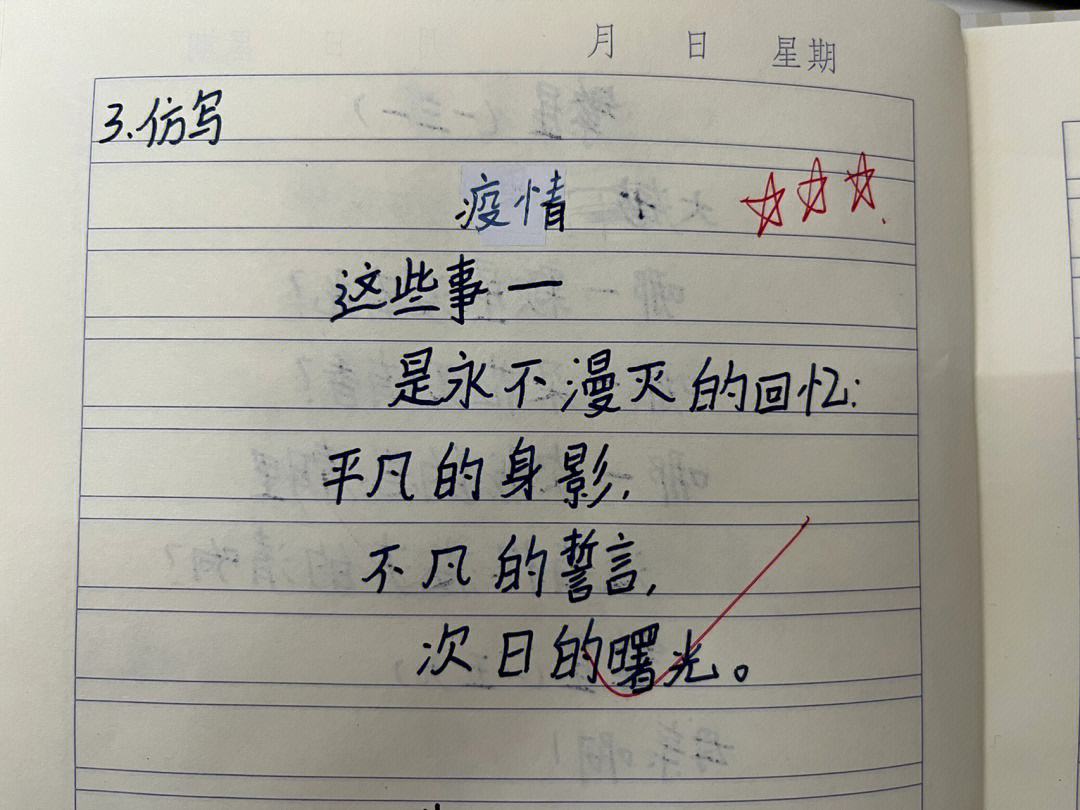 月 日 星期
3.仿写
疫情
这些事一
是永不漫灭的回忆:
平凡的身影,
不凡的誓言,
次日的曙光。